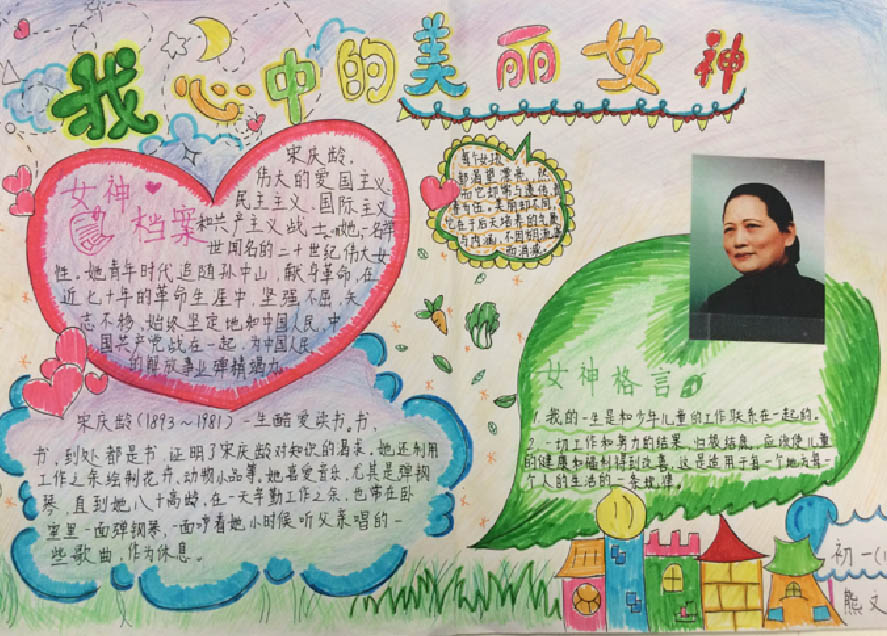 我心中的美丽女神
女神
档案
宋庆龄,
伟大的爱国主义
民主主义、国际主义
和共产主义战士。她,一名举
世闻名的二十世纪伟大女
性。她青年时代追随孙中山,献身革命,在
近七十年的革命生涯中,坚强不屈,矢
志不移,始终坚定地和中国人民、中
国共产党战在一起,为中国人民
的解放事业殚精竭力。
每个女孩
都渴望漂亮,然
而它却常与遗传
美丽却不同
它在于后天培养的气质
与内涵,不因时间流逝
而消减。
宋庆龄(1893~1981)一生酷爱读书。书、
书,到处都是书,证明了宋庆龄对知识的渴求,她还利用
工作之余绘制花卉、动物小品等。她喜爱音乐,尤其是弹钢
琴,直到她八十高龄,在一天辛勤工作之余,也常在卧
室里一面弹钢琴,一面哼着她小时候听父亲唱的一
些歌曲,作为休息。
女神格言
1.我的一生是和少年儿童的工作联系在一起的。
2.一切工作和努力的结果,归根结底,应该使儿童
的健康和福利得到改善,这是适用于每一个地方每一
个人的生活的一条规律。
初一(1
熊文